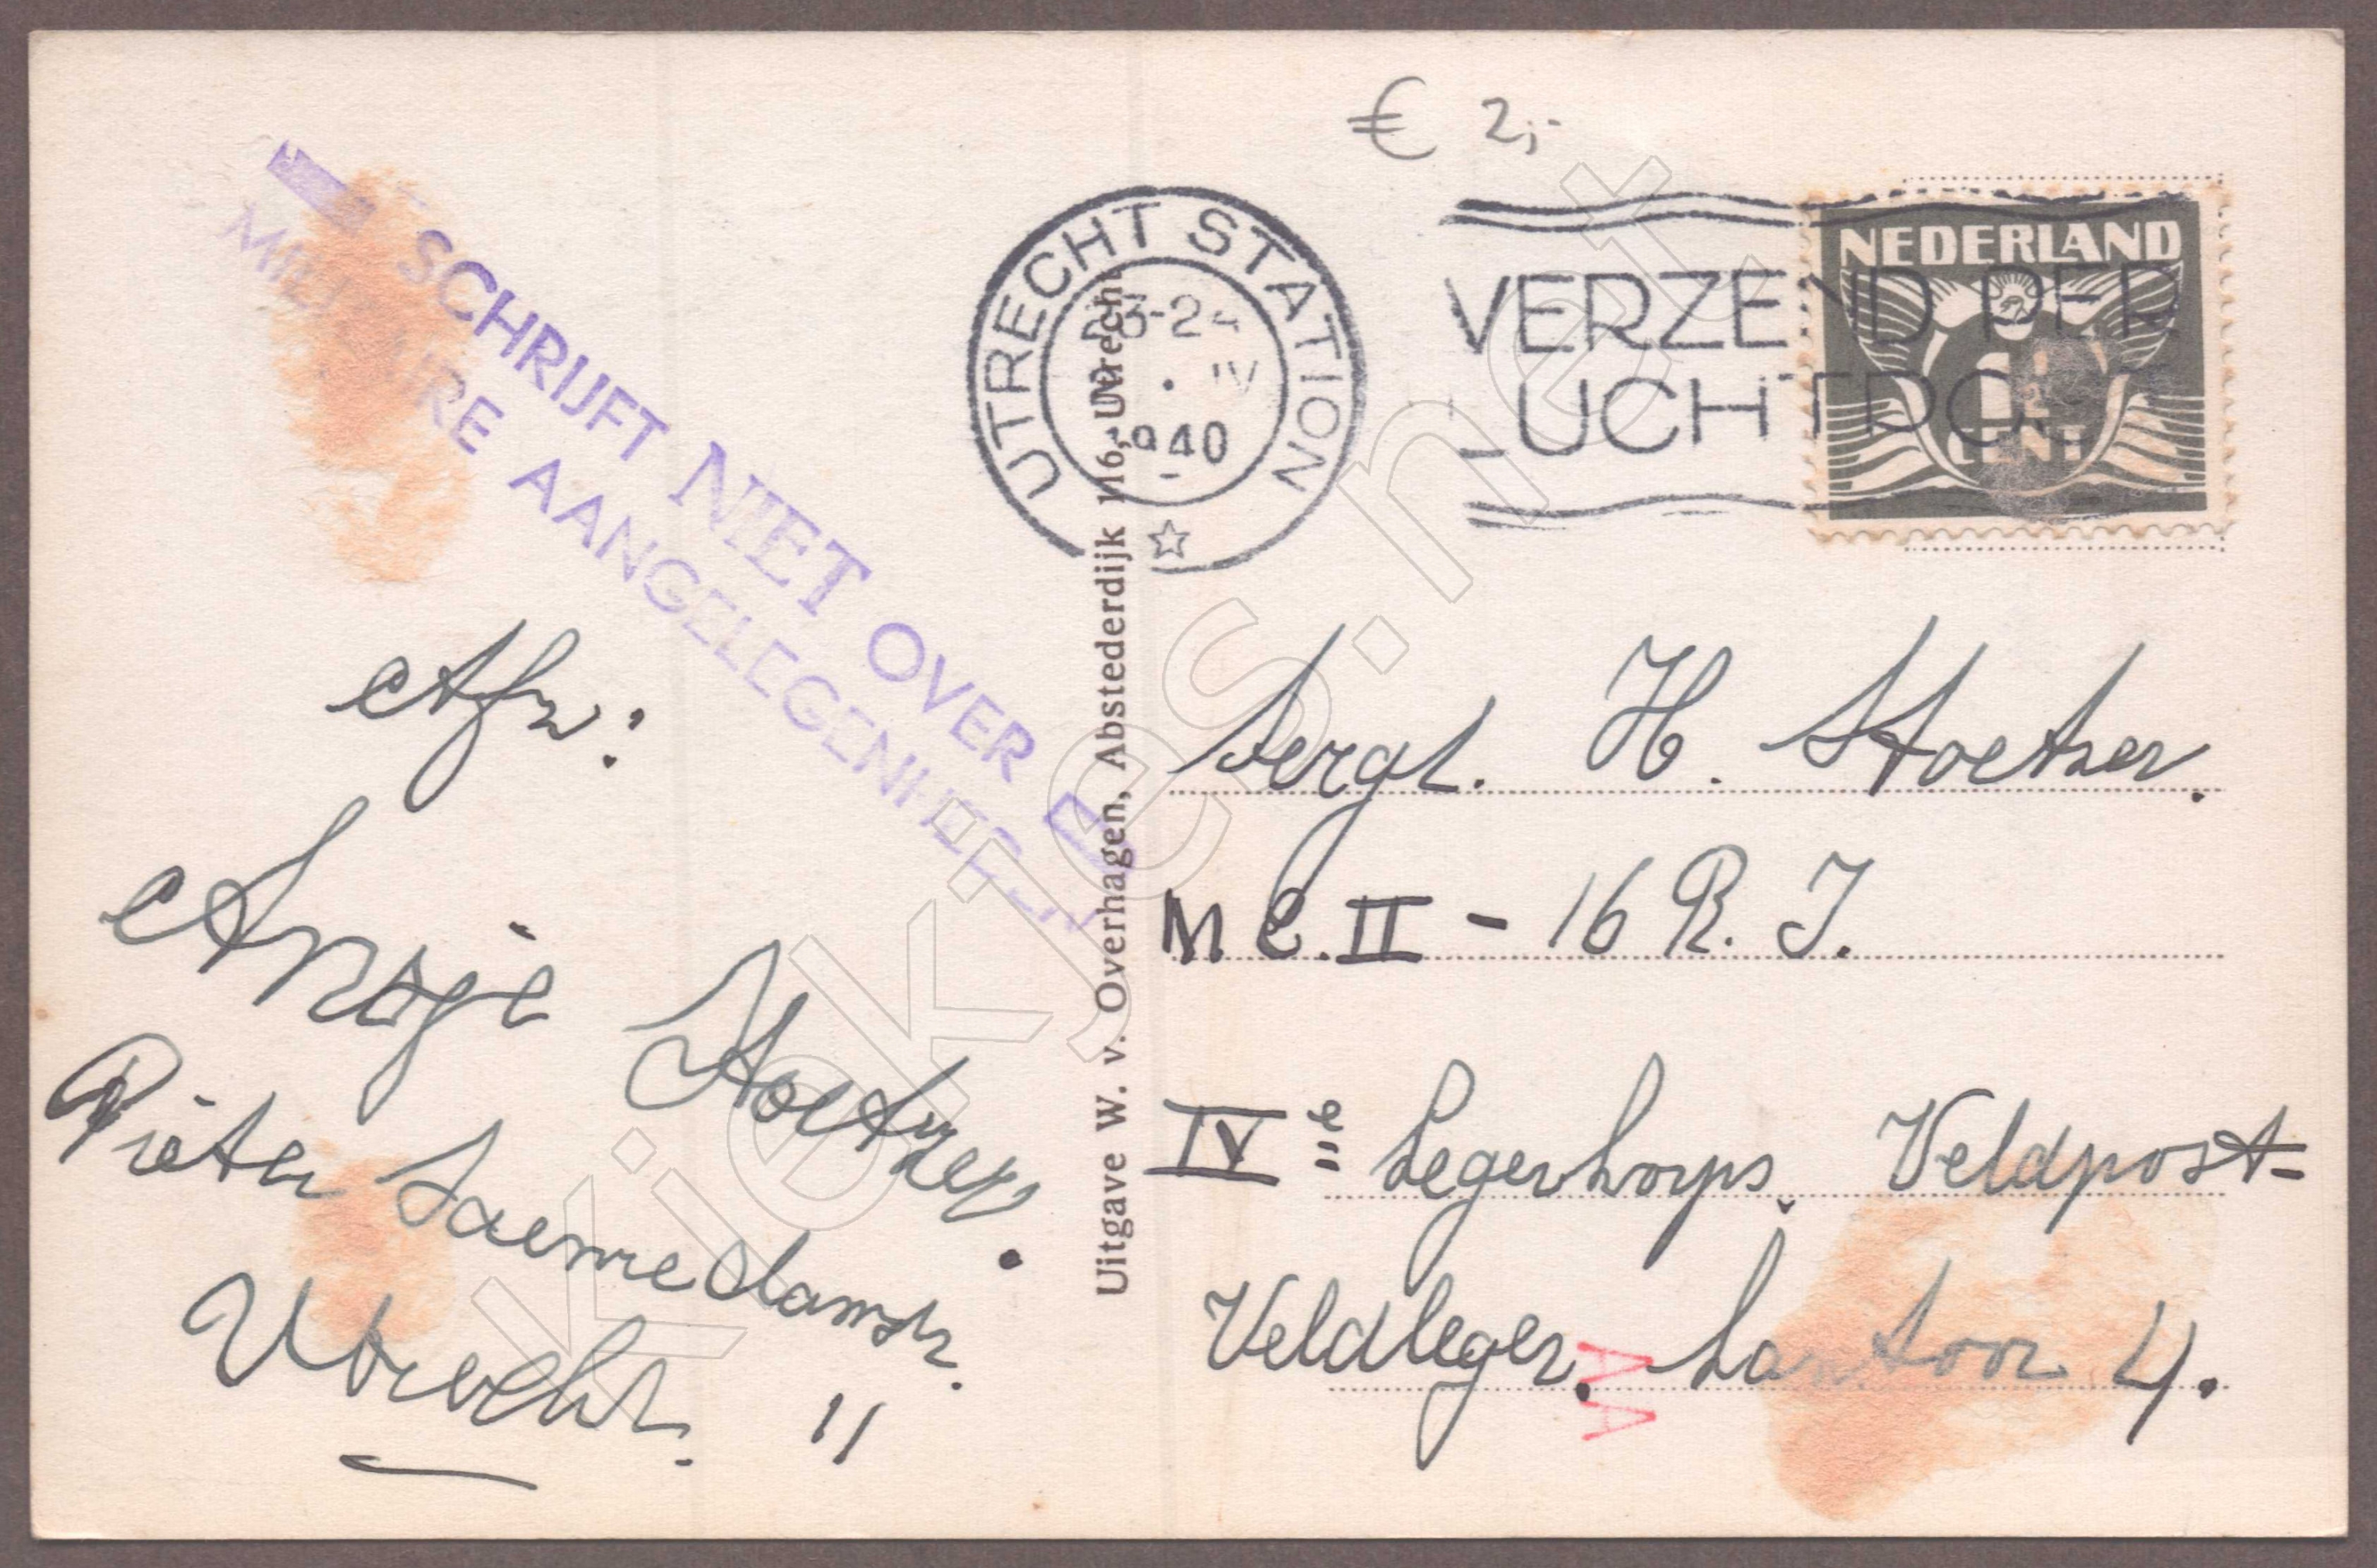 € 2,-
SCHRIJFT NIET OVER
MILITAIRE AANGELEGENHEDEN
UTRECHT STATION
23-24
IV
1940
VERZEND PER
LUCHTPOST
NEDERLAND
1½
CENT
Afz:
Antje Stoetzer.
Pieter Saenredamstr.
Utrecht. 11
Uitgave W. v. Overhagen, Abstederdijk 116, Utrecht
Sergt. H. Stoetzer.
M C. II - 16 R. I.
IVe Legerkorps. Veldpost-
Veldleger. kantoor 4.
AA
kiekjes.net